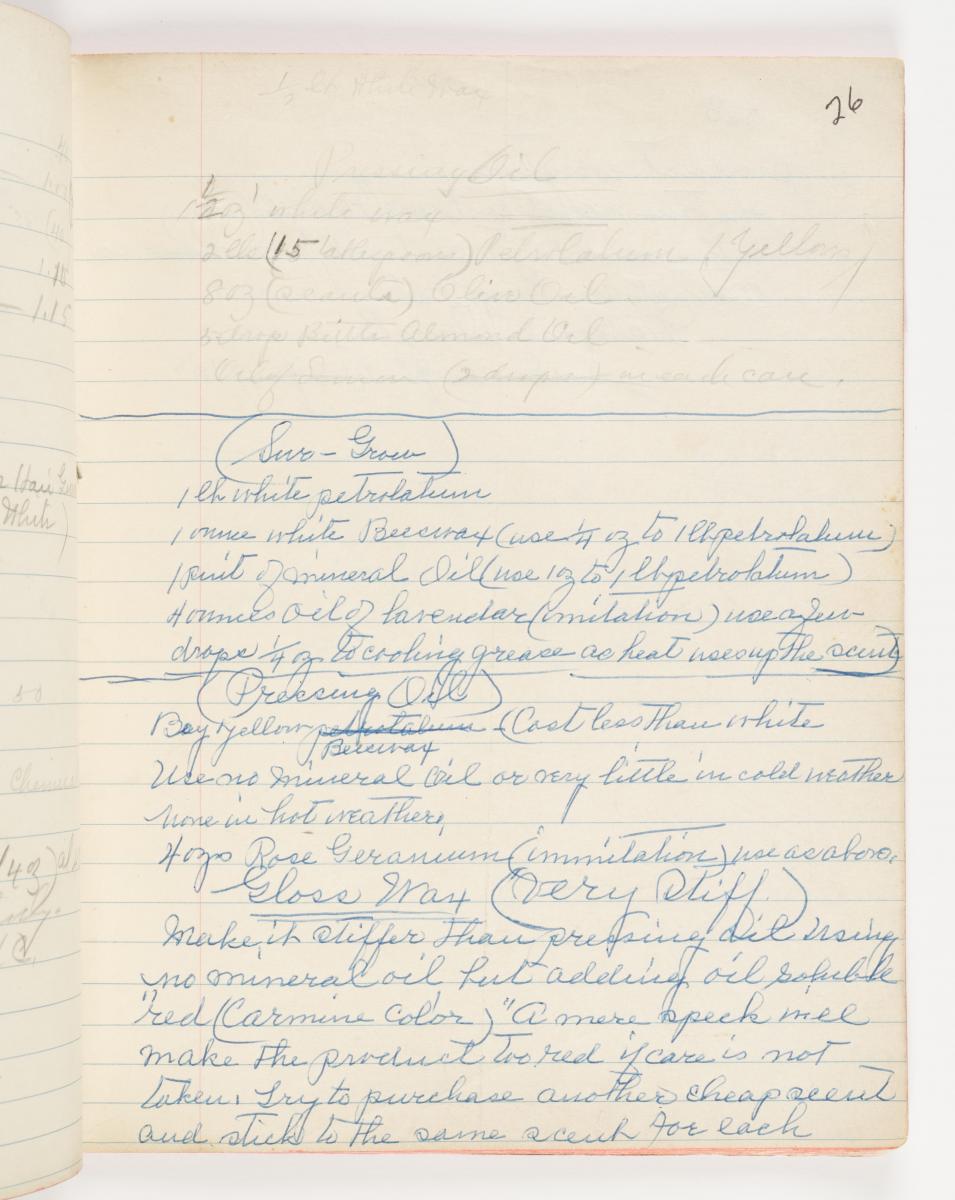 26
1/2 lb White Wax
Pressing Oil
1 1/2 oz white wax
2 lbs (15 tablespoons) Petrolatum (Yellow)
8 oz (scant) Olive Oil
drop Bitter Almond Oil
Oil of (2 drops) in each can.
(Suro-Grow)
1 lb white petrolatum
1 ounce white Beeswax (use 1/4 oz to 1 lb petrolatum)
1 pint of mineral Oil (use 1 oz to 1 lb petrolatum)
4 ounces Oil of lavendar (imitation) use a few
drops 1/4 oz to cooling grease as heat uses up the scent)
(Pressing Oil)
Buy yellow petrolatum - (Cost less than white
Beeswax
Use no mineral Oil or very little in cold weather
None in hot weather,
4 ozs Rose Geranium (immitation) use as above.
Gloss Wax (Very Stiff)
Make it stiffer than pressing oil using
no mineral oil but adding oil soluble
"red (Carmine color)" A mere speck will
make the product too red if care is not
taken. Try to purchase another cheap scent
and stick to the same scent for each
1.15
1.15
Hair
White)
50
1/4 oz)